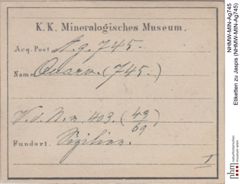 K.K. Mineralogisches Museum.
Acq. Post A.g. 745.
Name Quarz. (745.)
N. 403. (49/69)
Fundort. Sizilien.
I
NHMW-MIN-Ag745
Etiketten zu Jaspis (NHMW-MIN-Ag745)
nhm